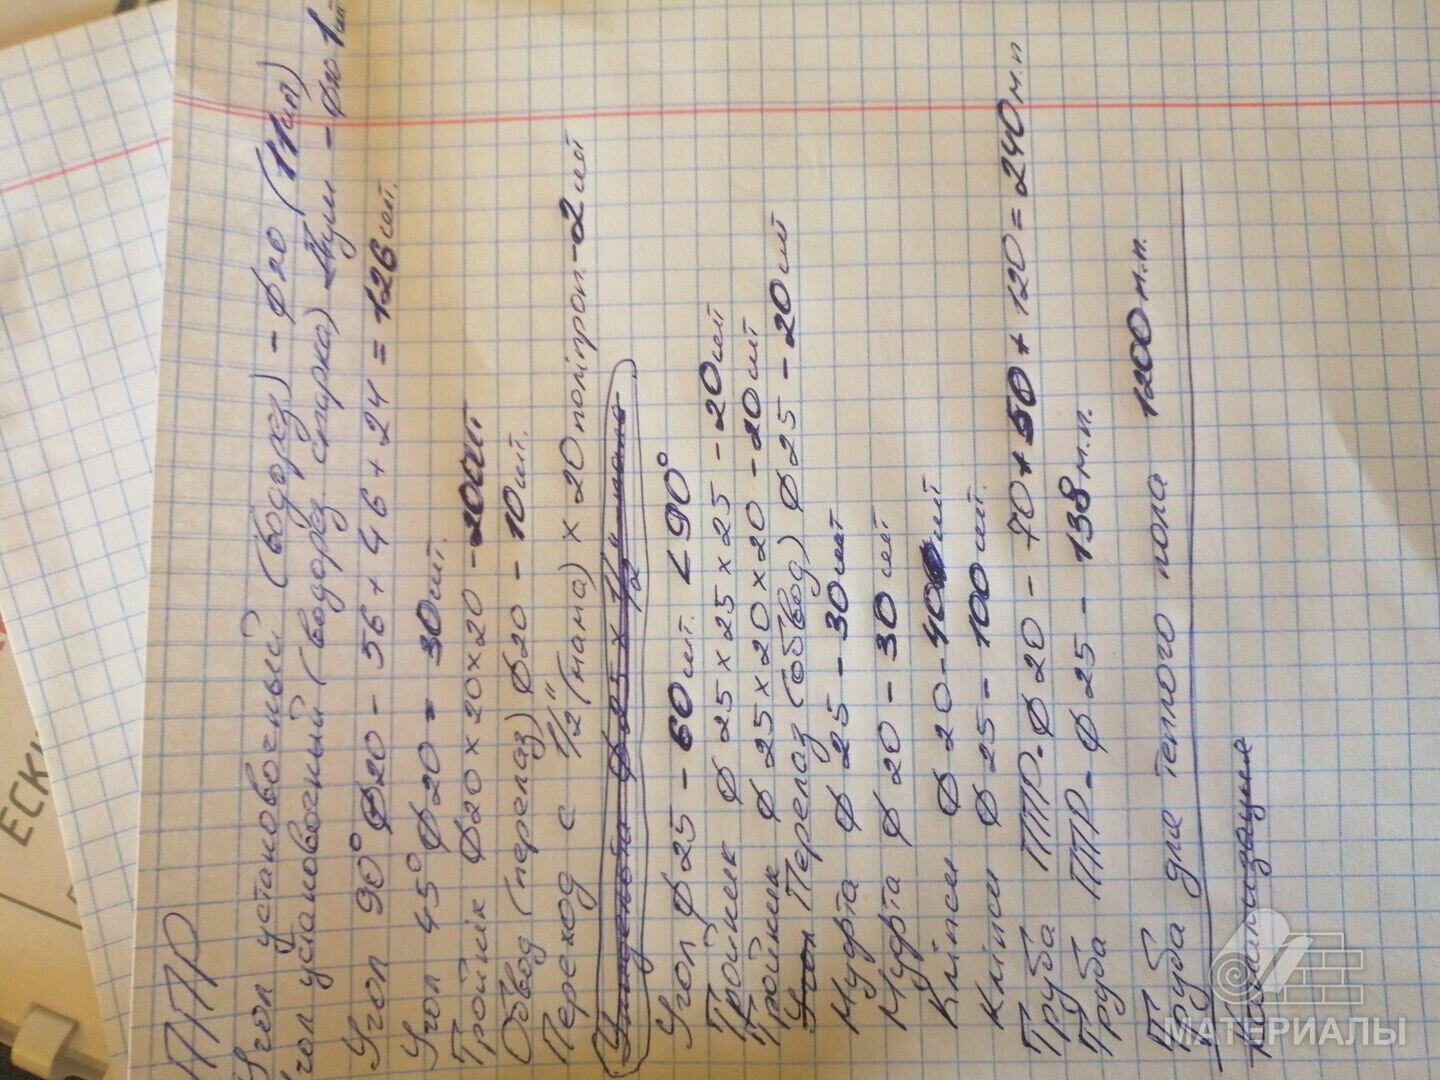 ППР
Угол установочный (водорез) - Ø20 (11шт)
Угол установочный (водорез спарка) - Ø20 1шт
Угол 90° Ø20 - 56 + 46 + 24 = 126 шт.
Угол 45° Ø20 - 30 шт.
Тройнік Ø20х20х20 - 20шт
Обвод (перелаз) Ø20 - 10 шт.
Переход с 1/2" (мама) х 20 поліпроп - 2 шт
Угол Ø25 - 60 шт. <90°
Тройник Ø 25 х 25 х 25 - 20 шт
Тройник Ø 25 х 20 х 20 - 20 шт
Перелаз (обвод) Ø 25 - 20 шт
Муфта Ø 25 - 30 шт
Муфта Ø 20 - 30 шт
Кліпси Ø 20 - шт
Кліпси Ø 25 - 100 шт.
Труба ППР - Ø 20 - 70 + 50 + 120 = 240 м.п
Труба ППР - Ø 25 - 138 м.п.
Труба для теплого пола 1200 м.п.
Канализация
ЕСКИ
МАТЕРИАЛЫ